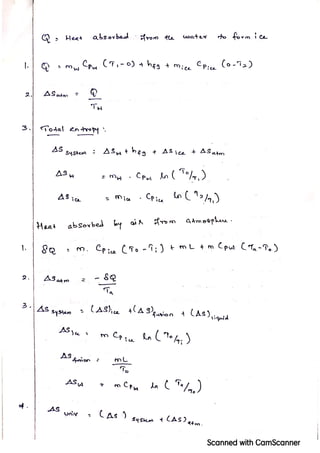 Q = Heat absorbed from the water to form ice
1. Q = mw Cpw (T1-0) + hfg + mice Cpice (0-T2)
2. ΔSatm = Q/TH
3. Total entropy :
ΔS system : ΔSw + hfg + ΔSice + ΔSatm
ΔSw = mw . Cpw ln (To/T1)
ΔSice = mice . Cpice ln (T2/T1)
Heat absorbed by air from atmosphere.
1. δQ = m. Cpice (To - Ti) + mL + m Cpw (Ta - To)
2. ΔSatm = - δQ/Ta
3. ΔS system = (ΔS)ice + (ΔS)fusion + (ΔS)liquid
ΔSice = m Cpice ln (To/Ti)
ΔSfusion = mL/To
ΔSw = m Cpw ln (Ta/To)
4. ΔS univ = (ΔS) system + (ΔS)atm.
Scanned with CamScanner